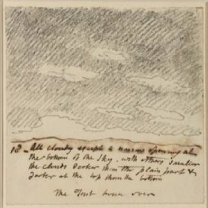 18 - All cloudy except a narrow opening at
the bottom of the sky with others smaller
the clouds darker than the plain part &
darker at the top than the bottom
The Tint twice over